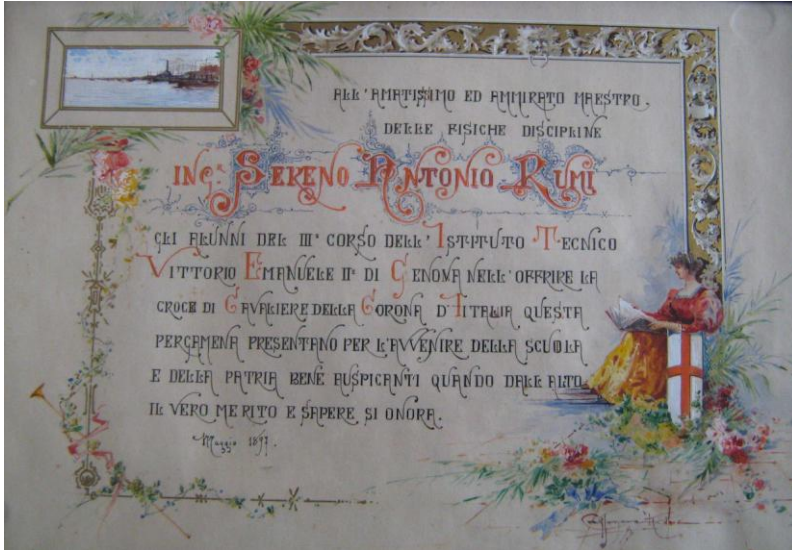 ALL'AMATISSIMO ED AMMIRATO MAESTRO,
DELLE FISICHE DISCIPLINE
ING.R SERENO ANTONIO RUMI
GLI ALUNNI DEL IIIº CORSO DELL'ISTITUTO TECNICO
VITTORIO EMANUELE IIº DI GENOVA NELL'OFFRIRE LA
CROCE DI CAVALIERE DELLA CORONA D'ITALIA QUESTA
PERGAMENA PRESENTANO PER L'AVVENIRE DELLA SCUOLA
E DELLA PATRIA BENE AUSPICANTI QUANDO DALL'ALTO
IL VERO MERITO E SAPERE SI ONORA.
Maggio 1897.